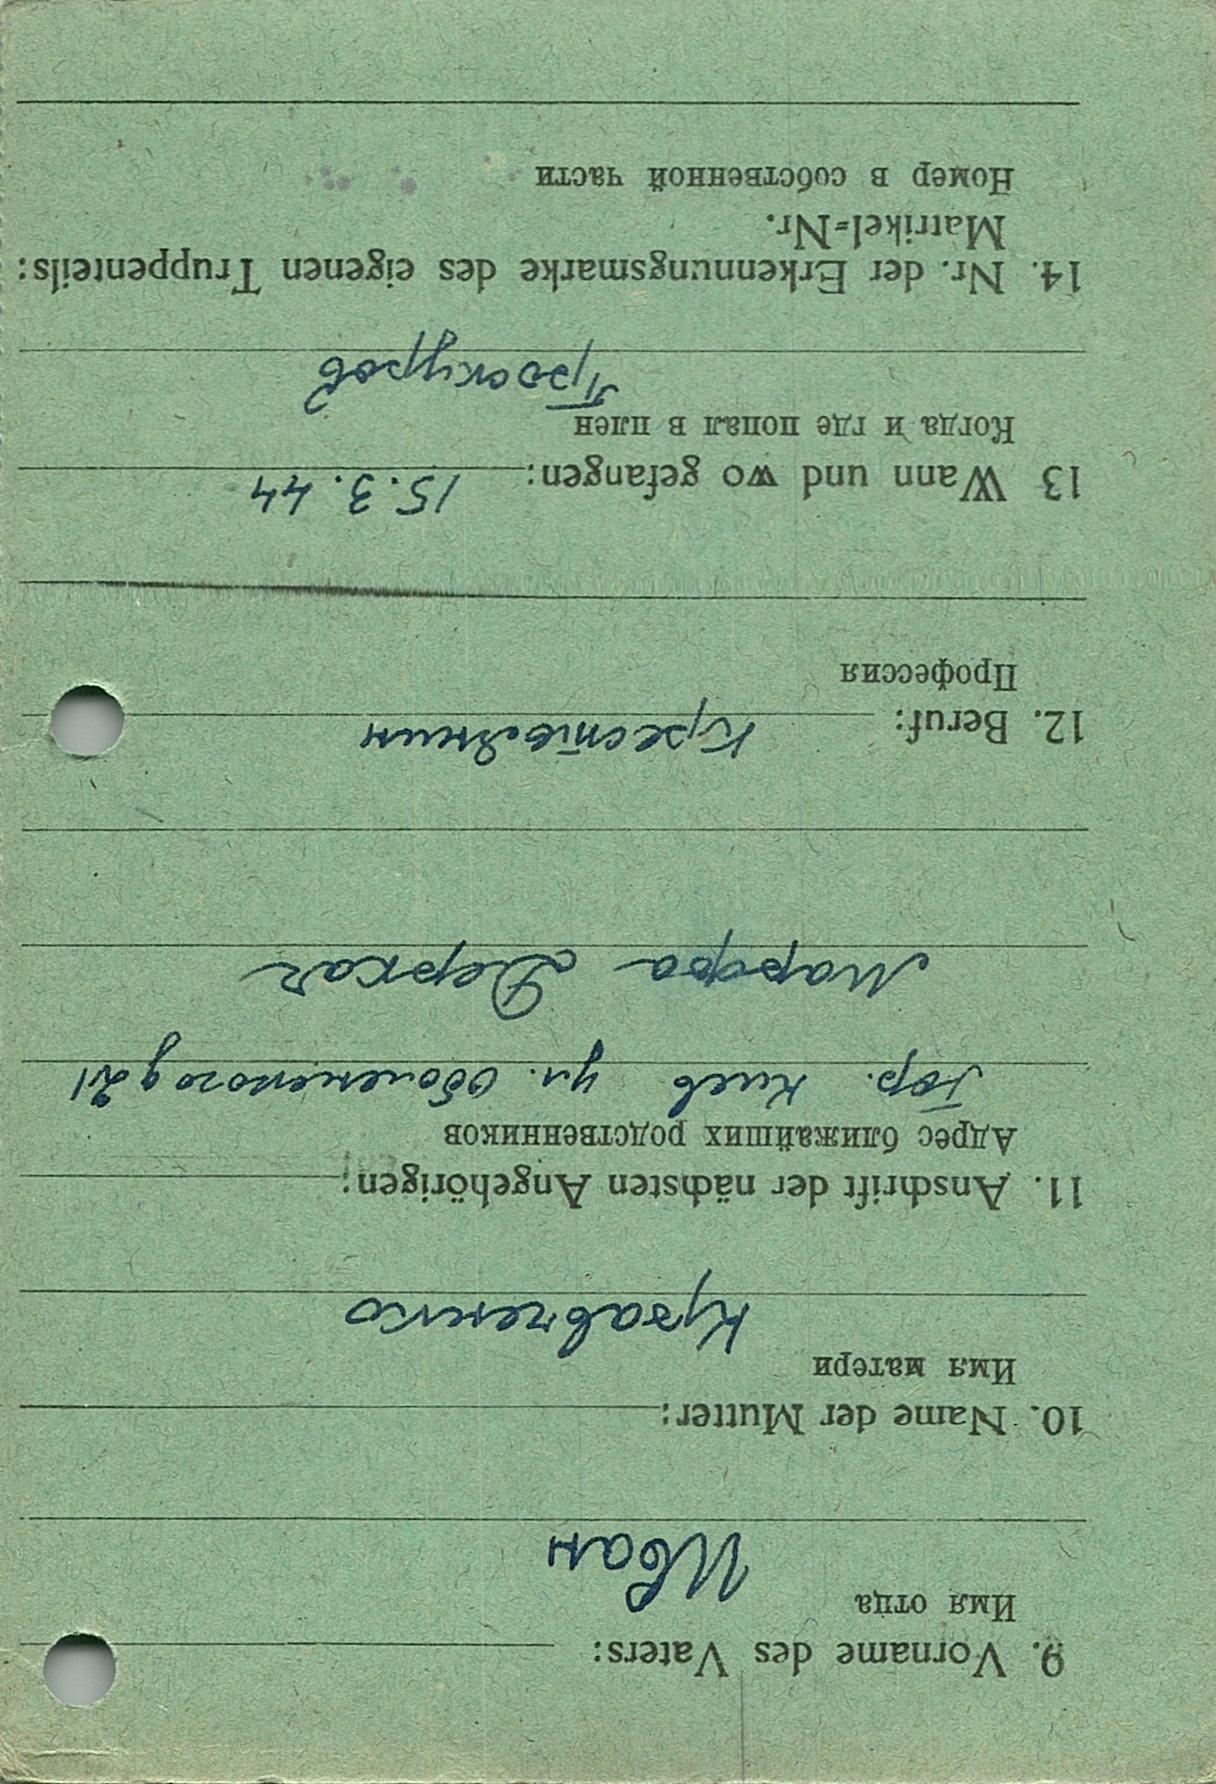 9. Vorname des Vaters:
Имя отца
Иван
10. Name der Mutter:
Имя матери
Кравченко
11. Anschrift der nächsten Angehörigen:
Адрес ближайших родственников
Гор. Киев ул. Оболенского д 21
Марфа Деркач
12. Beruf:
Профессия
Крестьянин
13 Wann und wo gefangen: 15.3.44
Когда и где попал в плен
Проскуров
14. Nr. der Erkennungsmarke des eigenen Truppenteils:
Matrikel=Nr.
Номер в собственной части